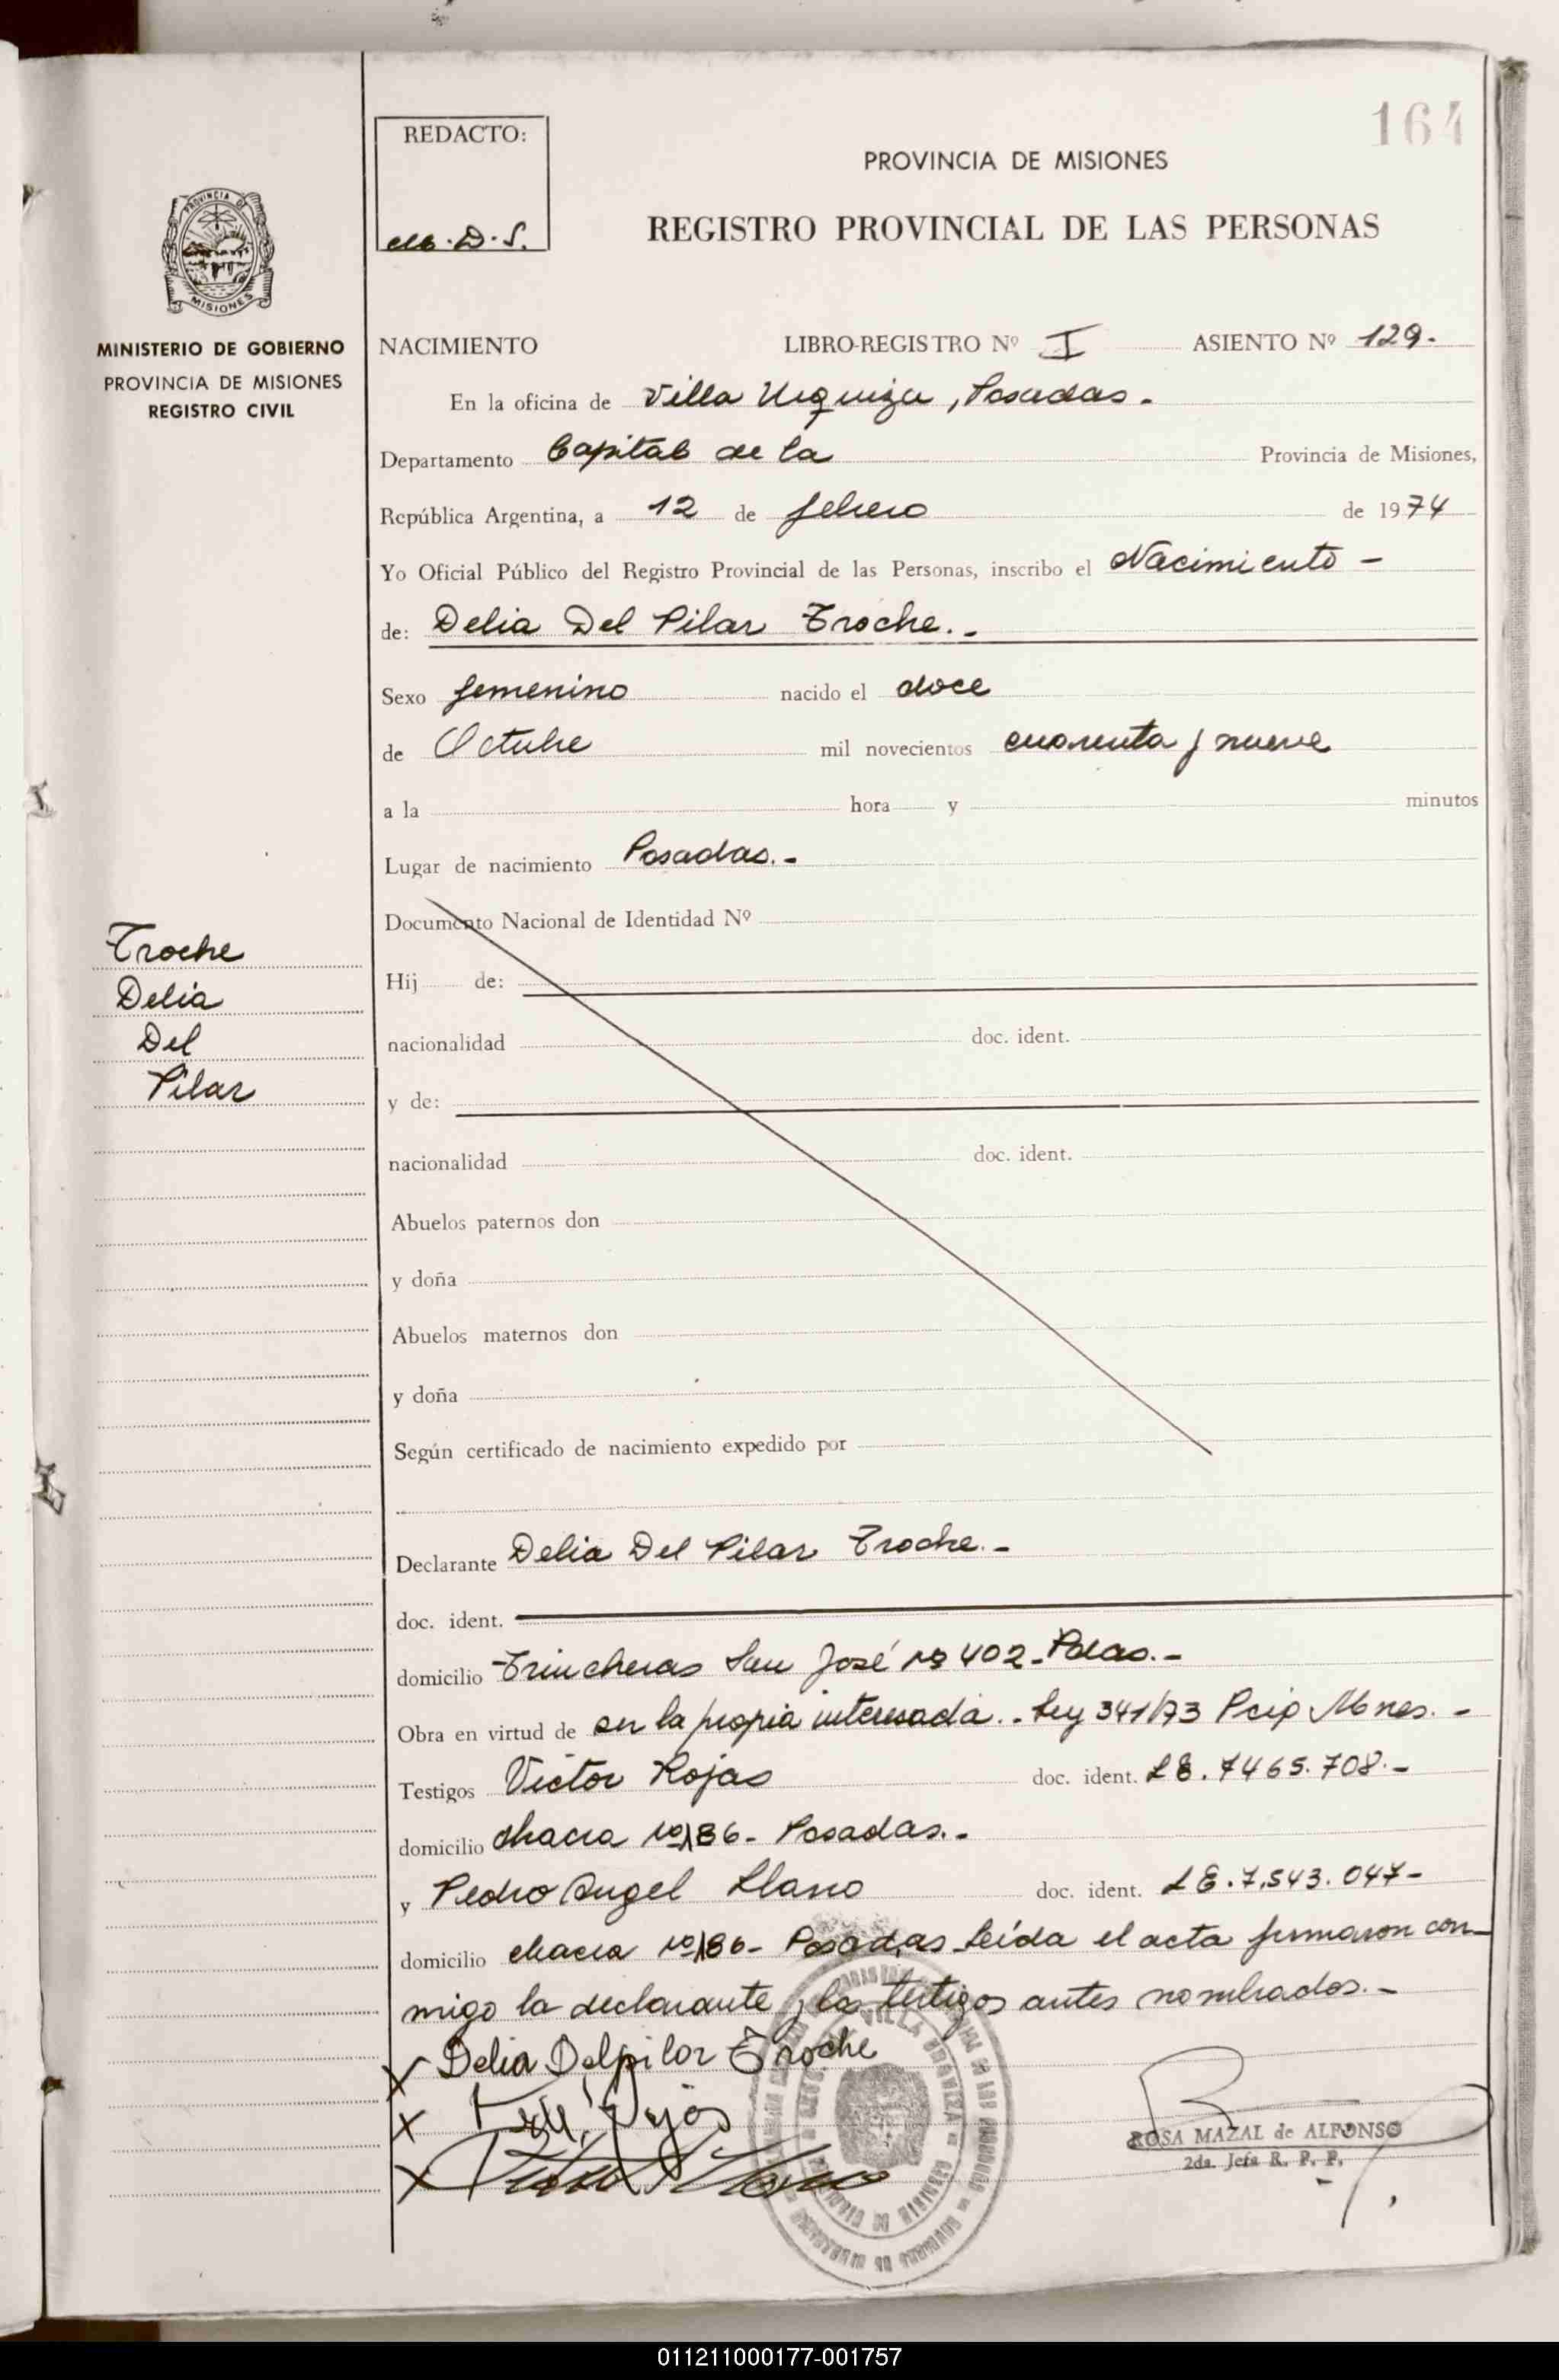 164
REDACTO:
M.D.S.
PROVINCIA DE MISIONES
REGISTRO PROVINCIAL DE LAS PERSONAS
PROVINCIA DE
MISIONES
MINISTERIO DE GOBIERNO
PROVINCIA DE MISIONES
REGISTRO CIVIL
NACIMIENTO LIBRO-REGISTRO Nº I ASIENTO Nº 129.-
En la oficina de Villa Urquiza, Posadas.-
Departamento Capital de la Provincia de Misiones,
República Argentina, a 12 de febrero de 1974
Yo Oficial Público del Registro Provincial de las Personas, inscribo el Nacimiento -
de: Delia Del Pilar Troche.-
Sexo femenino nacido el doce
de Octubre mil novecientos cuarenta y nueve
a la hora y minutos
Lugar de nacimiento Posadas.-
Documento Nacional de Identidad Nº
Troche
Delia
Del
Pilar
Hij de:
nacionalidad doc. ident.
y de:
nacionalidad doc. ident.
Abuelos paternos don
y doña
Abuelos maternos don
y doña
Según certificado de nacimiento expedido por
Declarante Delia Del Pilar Troche.-
doc. ident.
domicilio Trincheras San José Nº 402-Pdas.-
Obra en virtud de ser la propia interesada.- Ley 341/73 Pcia Mnes.-
Testigos Victor Rojas doc. ident. LE.7465.708.-
domicilio chacra Nº186- Posadas.-
y Pedro Angel Llano doc. ident. LE.7.543.047-
domicilio chacra Nº186- Posadas Leída el acta firmaron con-
migo la declarante y los testigos antes nombrados.-
Delia Delpilar Troche
VILLA URQUIZA
ROSA MAZAL de ALFONSO
2da. Jefa R. P. P.
011211000177-001757